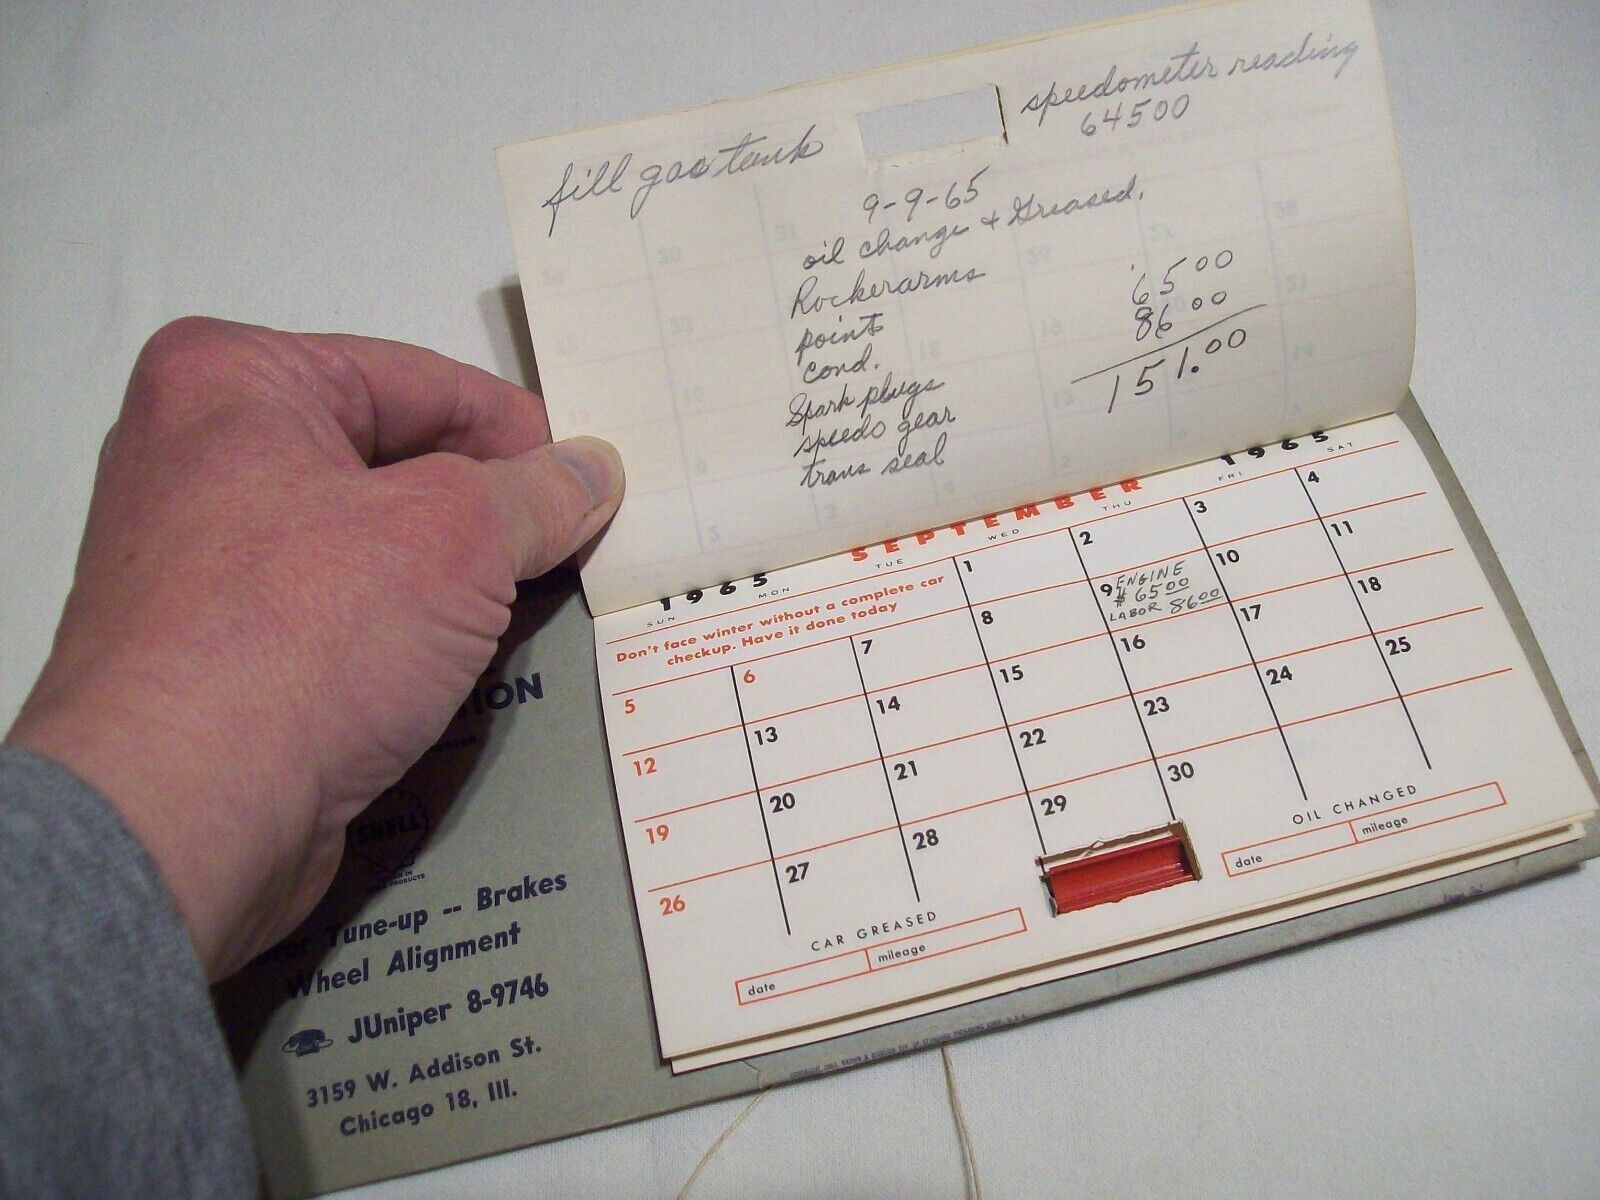 fill gas tank
speedometer reading
64500
9-9-65
oil change & Greased.
Rockerarms
points
cond.
Spark plugs
speedo gear
trans seal
65 00
86 00
151.00
1965 SEPTEMBER 1965
SUN MON TUE WED THU FRI SAT
Don't face winter without a complete car
checkup. Have it done today
1 2 3 4
5 6 7 8 9 10 11
ENGINE
$ 65 00
LABOR 86 00
12 13 14 15 16 17 18
19 20 21 22 23 24 25
26 27 28 29 30
CAR GREASED
date mileage
OIL CHANGED
date mileage
SHELL
Tune-up -- Brakes
Wheel Alignment
JUniper 8-9746
3159 W. Addison St.
Chicago 18, Ill.